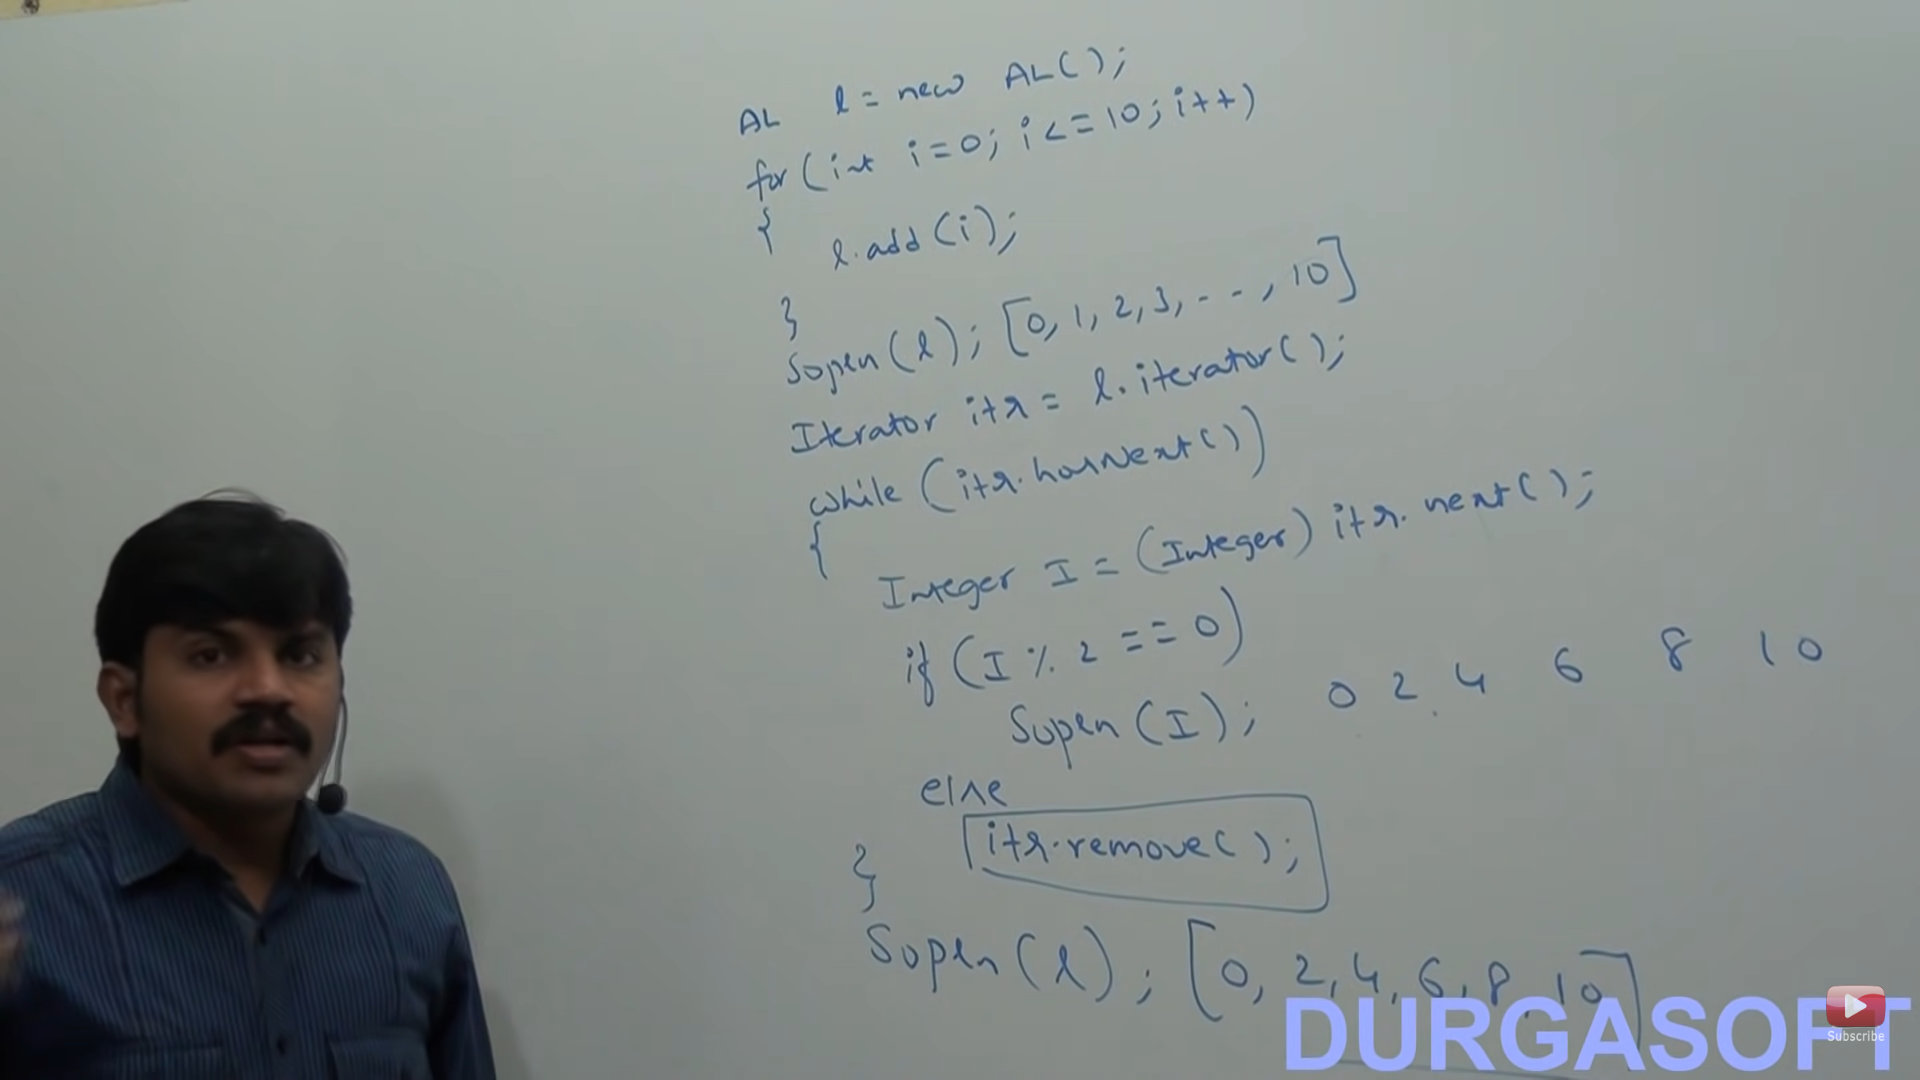 AL l = new AL();
for (int i=0; i<=10; i++)
{
l.add(i);
}
Sopln(l); [0, 1, 2, 3, - - , 10]
Iterator itr = l.iterator();
while (itr.hasNext())
{
Integer I = (Integer) itr.next();
if (I % 2 == 0)
Sopln (I); 0 2 4 6 8 10
else
itr.remove();
}
Sopln (l); [0, 2, 4, 6, 8, 10]
DURGASOFT
Subscribe